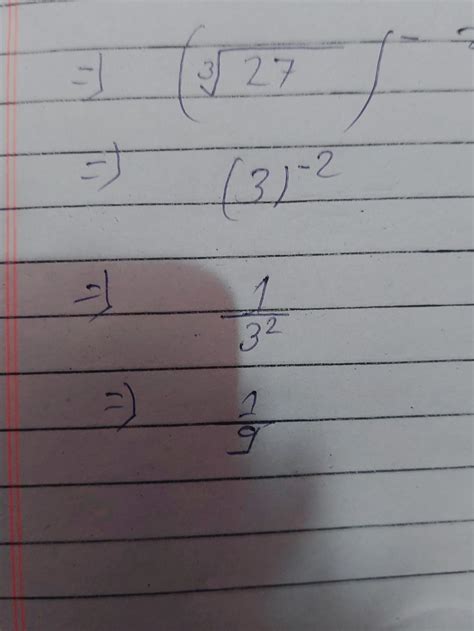 => (∛27)^-
=> (3)^-2
=> 1/3^2
=> 1/9